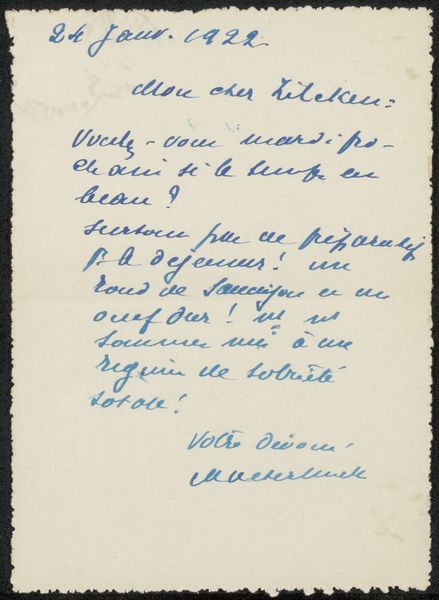 24 Janv. 1922
Mon cher Zilcken:
Voulez-vous mardi pro-
chain si le temps est
beau?
Surtout pas de préparatifs
pr le déjeuner! un
rond de saucisson et un
oeuf dur! ns ns
sommes mis à un
régime de sobriété
totale!
Votre dévoué
Maeterlinck